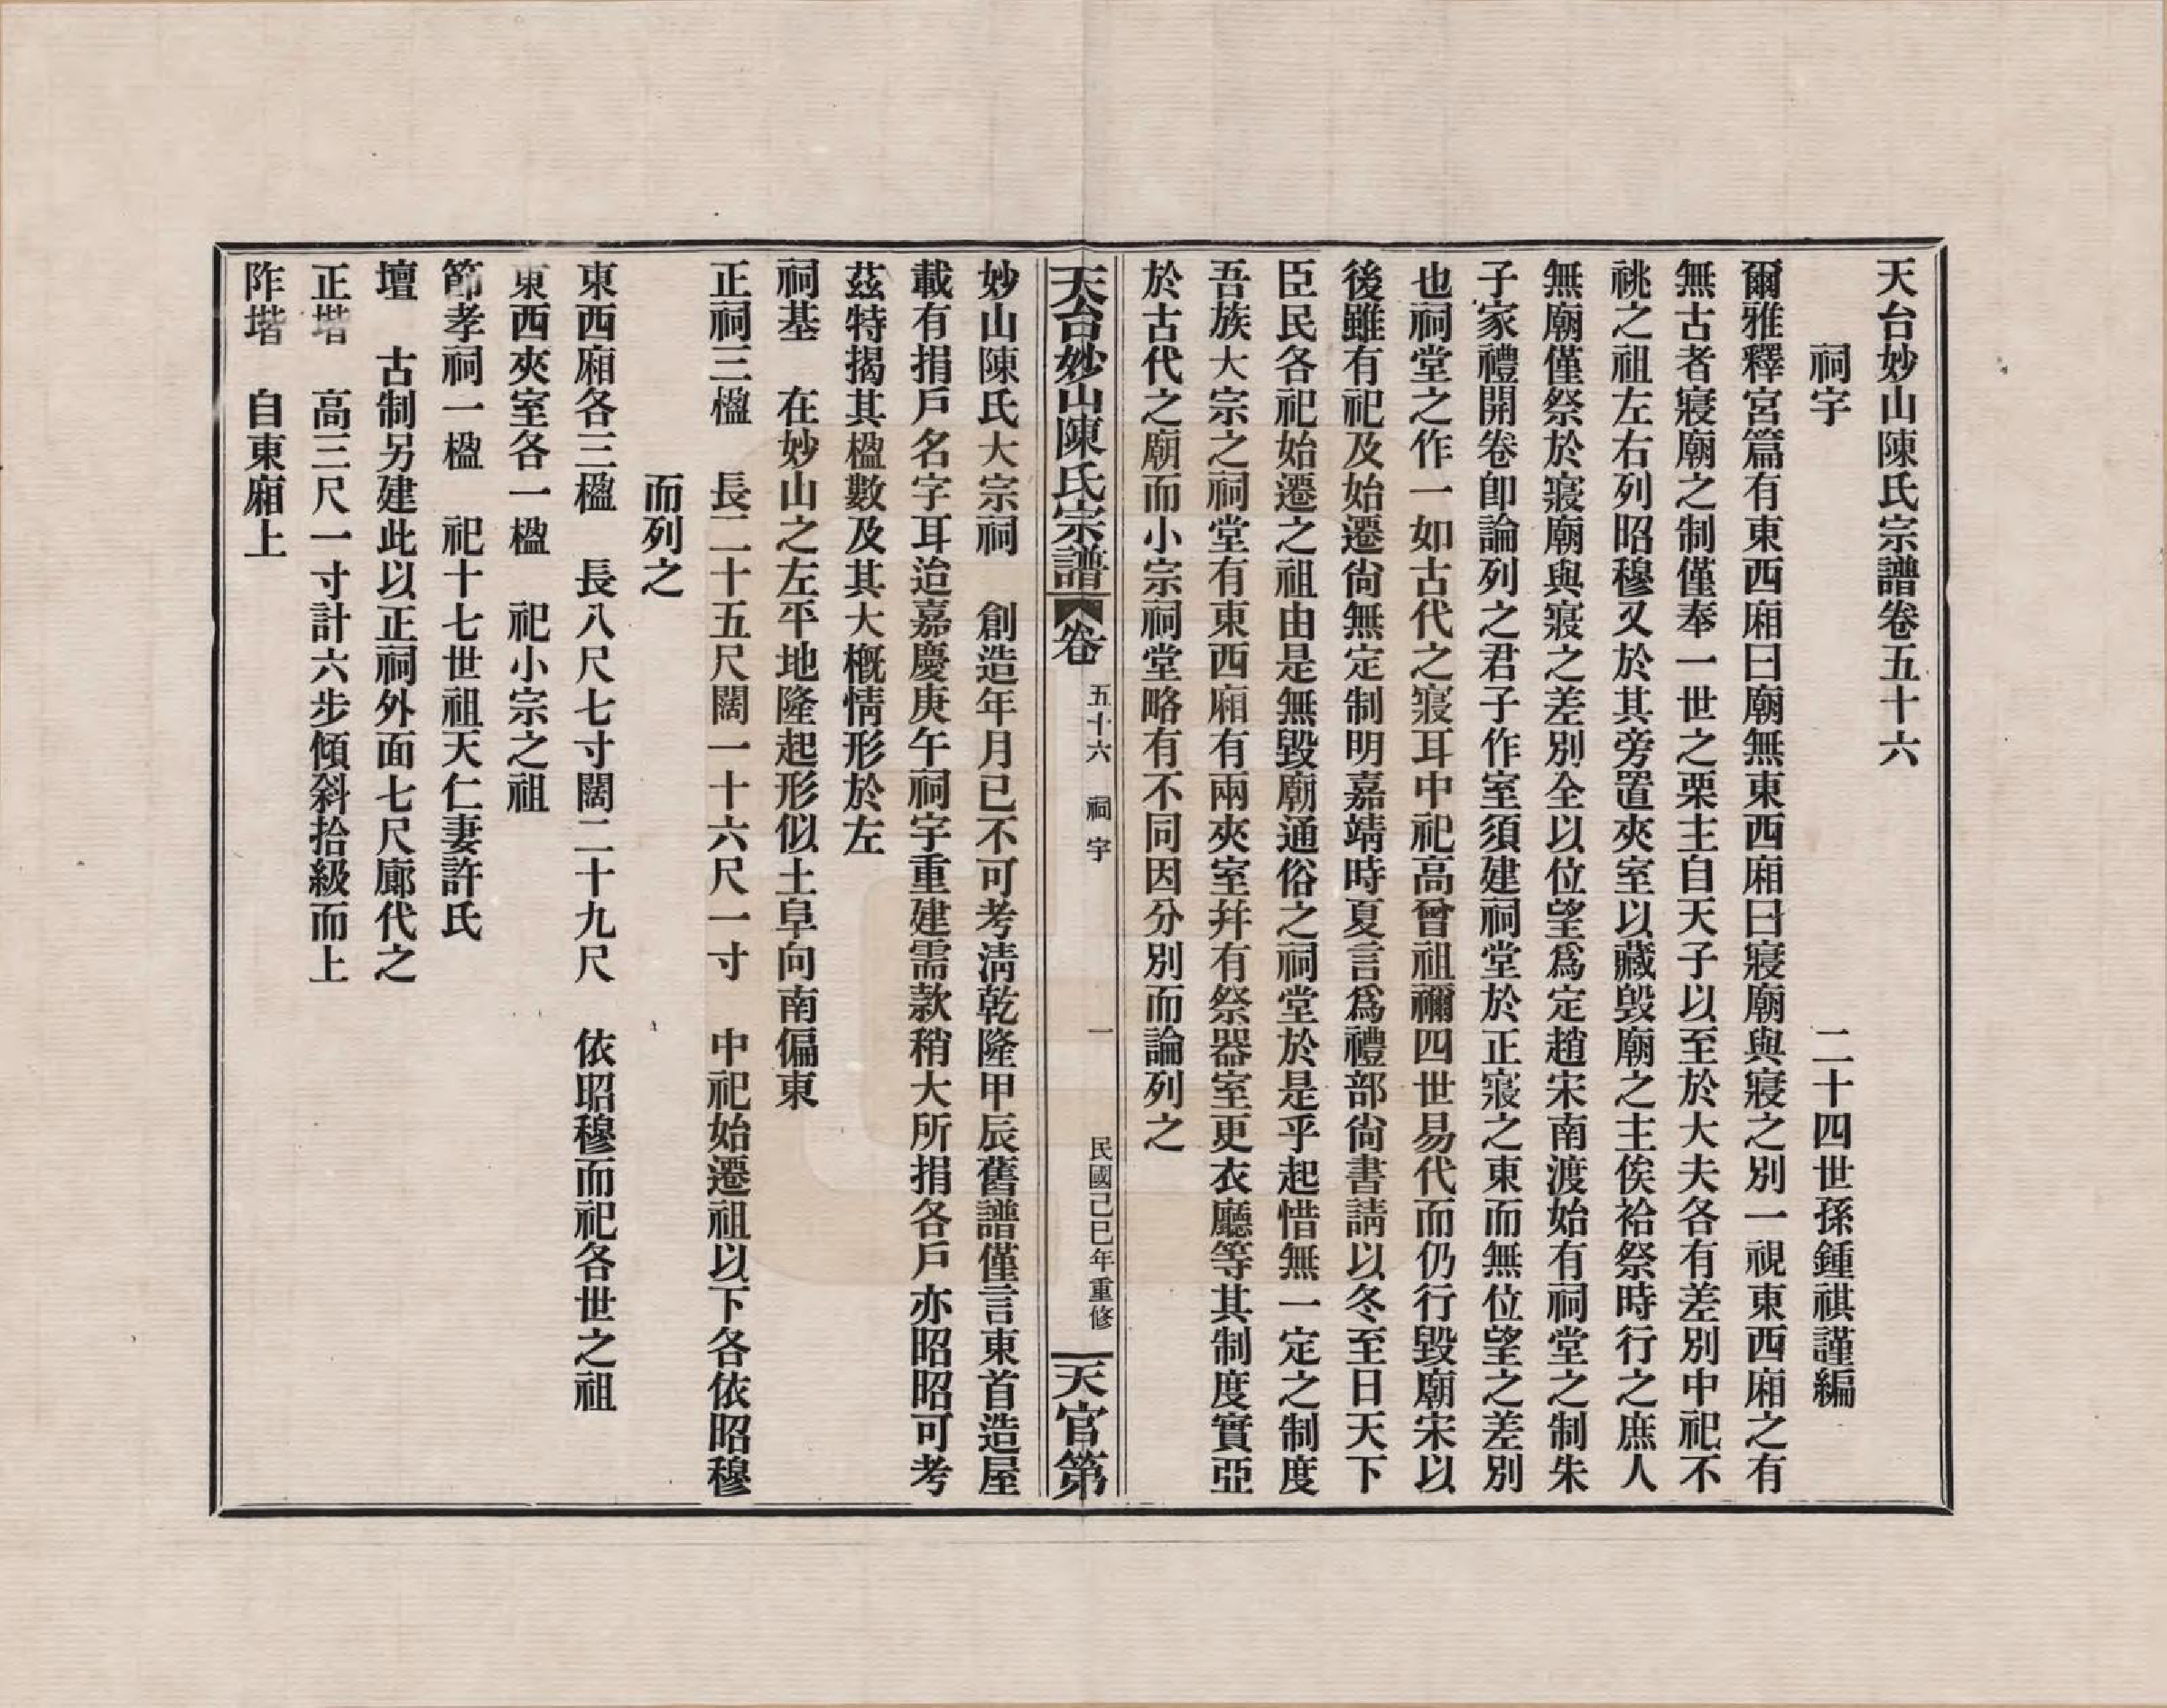 天台妙山陳氏宗譜卷五十六
祠宇　二十四世孫鍾祺謹編
爾雅釋宮篇有東西廂曰廟無東西廂曰寢廟與寢之別一視東西廂之有
無古者寢廟之制僅奉一世之栗主自天子以至於大夫各有差別中祀不
祧之祖左右列昭穆又於其旁置夾室以藏毀廟之主俟祫祭時行之庶人
無廟僅祭於寢廟與寢之差別全以位望爲定趙宋南渡始有祠堂之制朱
子家禮開卷卽論列之君子作室須建祠堂於正寢之東而無位望之差別
也祠堂之作一如古代之寢耳中祀高曾祖禰四世易代而仍行毀廟宋以
後雖有祀及始遷尙無定制明嘉靖時夏言爲禮部尙書請以冬至日天下
臣民各祀始遷之祖由是無毀廟通俗之祠堂於是乎起惜無一定之制度
吾族大宗之祠堂有東西廂有兩夾室幷有祭器室更衣廳等其制度實亞
於古代之廟而小宗祠堂略有不同因分別而論列之
天台妙山陳氏宗譜　卷　五十六　祠宇　一　民國己巳年重修　天官第
妙山陳氏大宗祠　創造年月已不可考淸乾隆甲辰舊譜僅言東首造屋
載有捐戶名字耳迨嘉慶庚午祠宇重建需款稍大所捐各戶亦昭昭可考
茲特揭其楹數及其大概情形於左
祠基　在妙山之左平地隆起形似土阜向南偏東
正祠三楹　長二十五尺闊一十六尺一寸　中祀始遷祖以下各依昭穆
而列之
東西廂各三楹　長八尺七寸闊二十九尺　依昭穆而祀各世之祖
東西夾室各一楹　祀小宗之祖
節孝祠一楹　祀十七世祖天仁妻許氏
壇　古制另建此以正祠外面七尺廊代之
正堦　高三尺一寸計六步傾斜拾級而上
阼堦　自東廂上